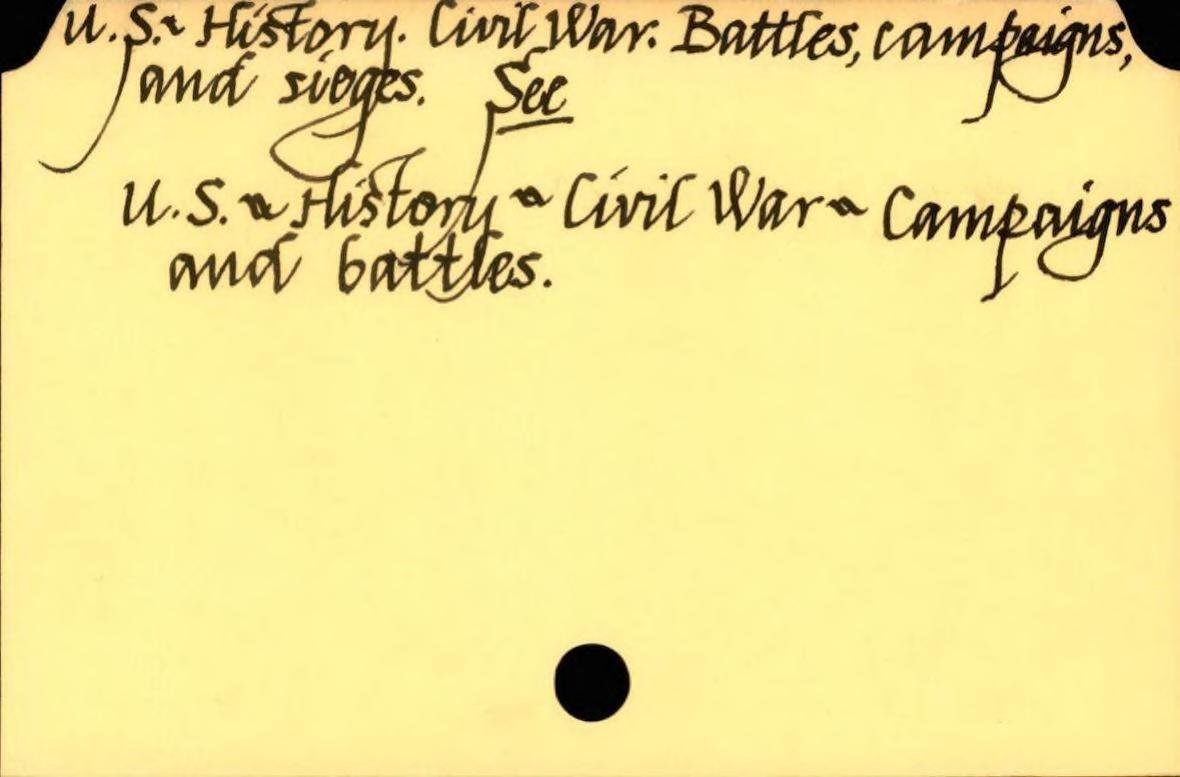 U.S. ~ History. Civil War. Battles, campaigns,
and sieges. See
U.S. ~ History ~ Civil War ~ Campaigns
and battles.